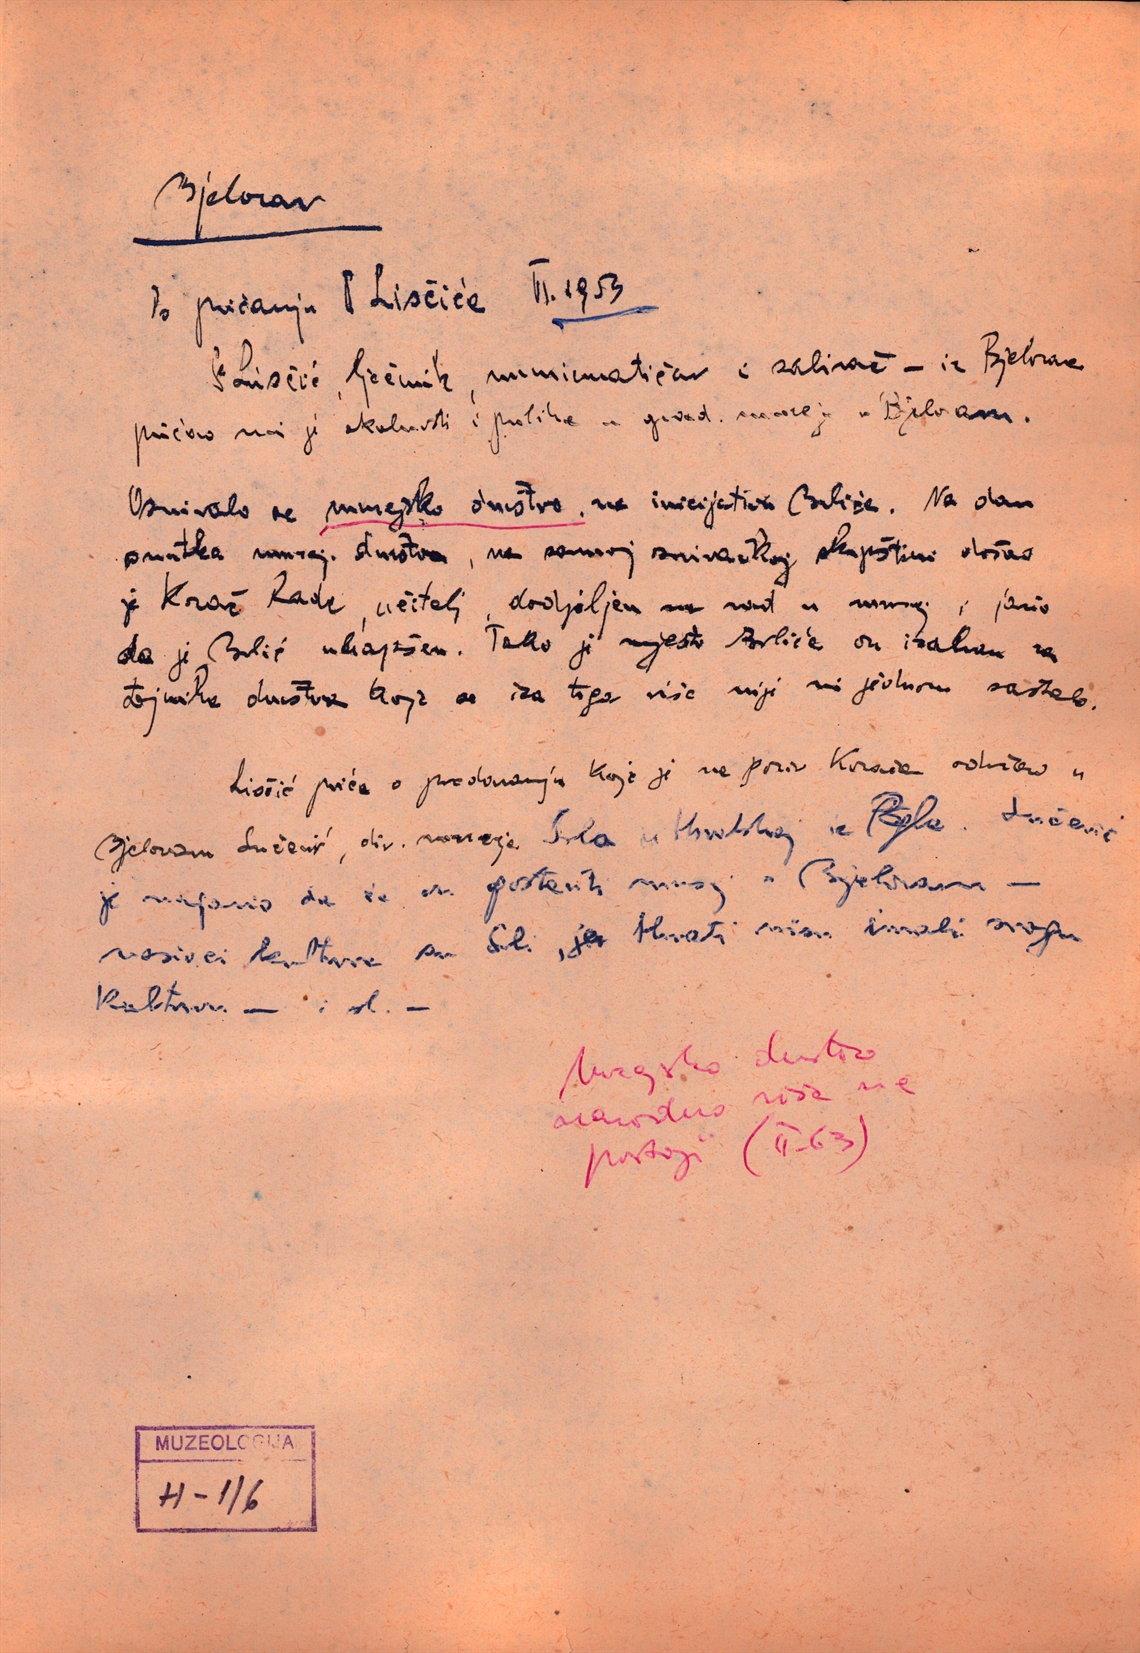 Bjelovar
Po pričanju Liščića VI. 1953
Liščić, liječnik, numizmatičar i sabirač – iz Bjelovara
pričao mi je okolnosti i prilike u grad. muzeju u Bjelovaru.
Osnivalo se muzejsko društvo, na inicijativu Brlića. Na dan
osnutka muzej. društva, na samoj osnivačkoj skupštini došao
je Korać Rade, učitelj, dodjeljen na rad u muzej i javio
da je Brlić uhapšen. Tako je mjesto Brlića on izabran za
tajnika društva koje se iza toga više nije ni jednom sastalo.
Liščić priča o predavanju koje je na poziv Koraća održao u
Bjelovaru, dir. muzeja Srba u Hrvatskoj iz
je najavio da će on postaviti muzej u Bjelovaru —
nosioci kulture su Srbi, jer Hrvati nisu imali svoju
kulturu — i sl. —
Muzejsko društvo
navodno više ne
postoji (II-63)
MUZEOLOGIJA
H-1/6